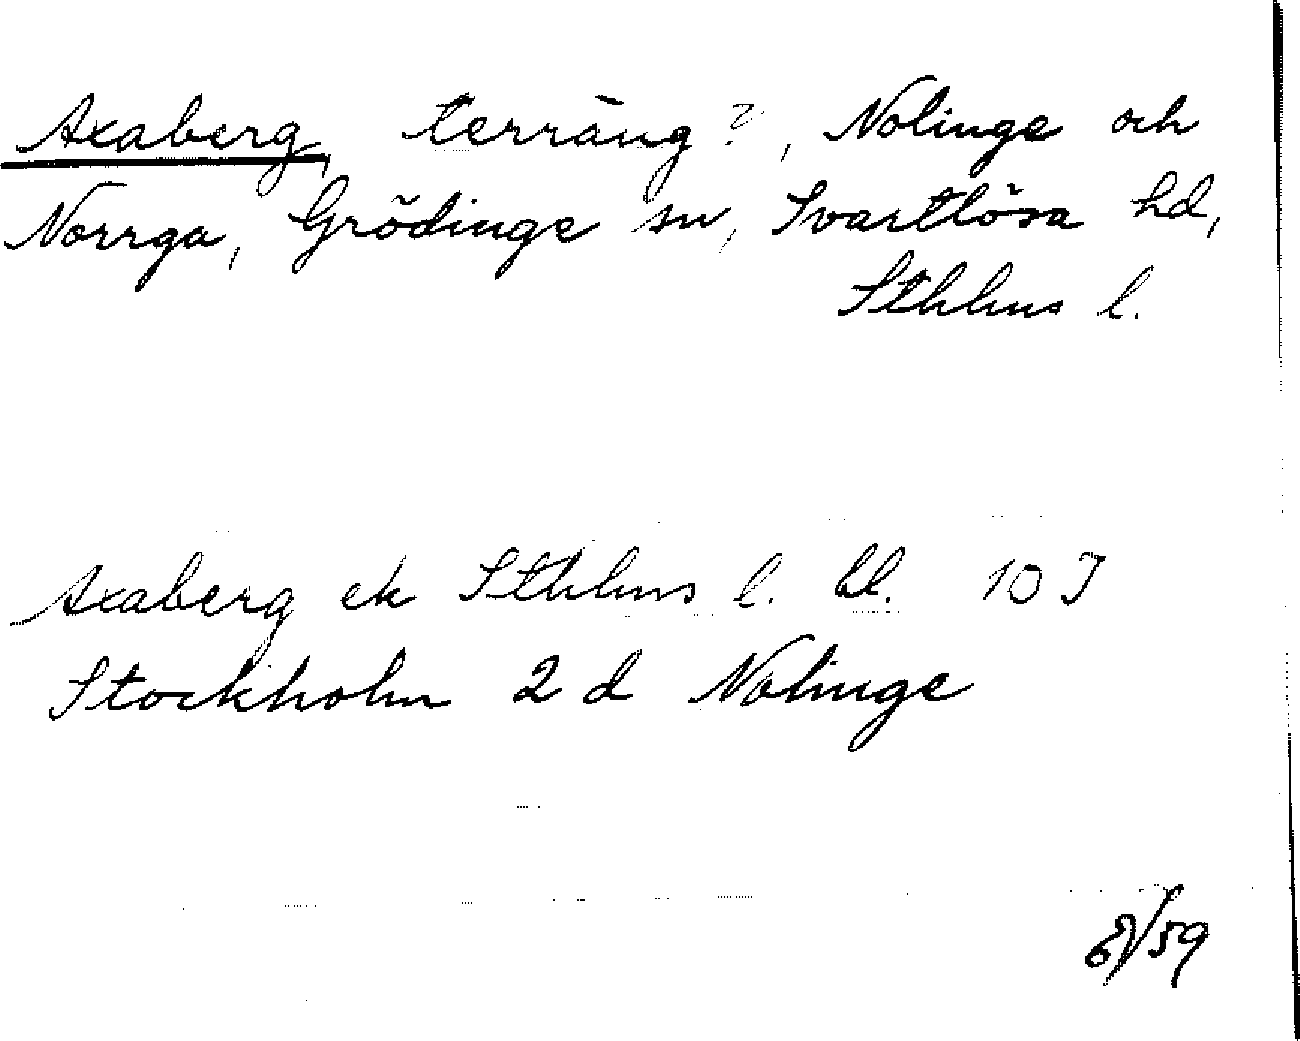 Axaberg, terräng?, Nolinge och
Norrga, Grödinge sn, Svartlösa hd,
Sthlms l.
Axaberg ek Sthlms l. bl. 10 I
Stockholm 2 d Nolinge
/59